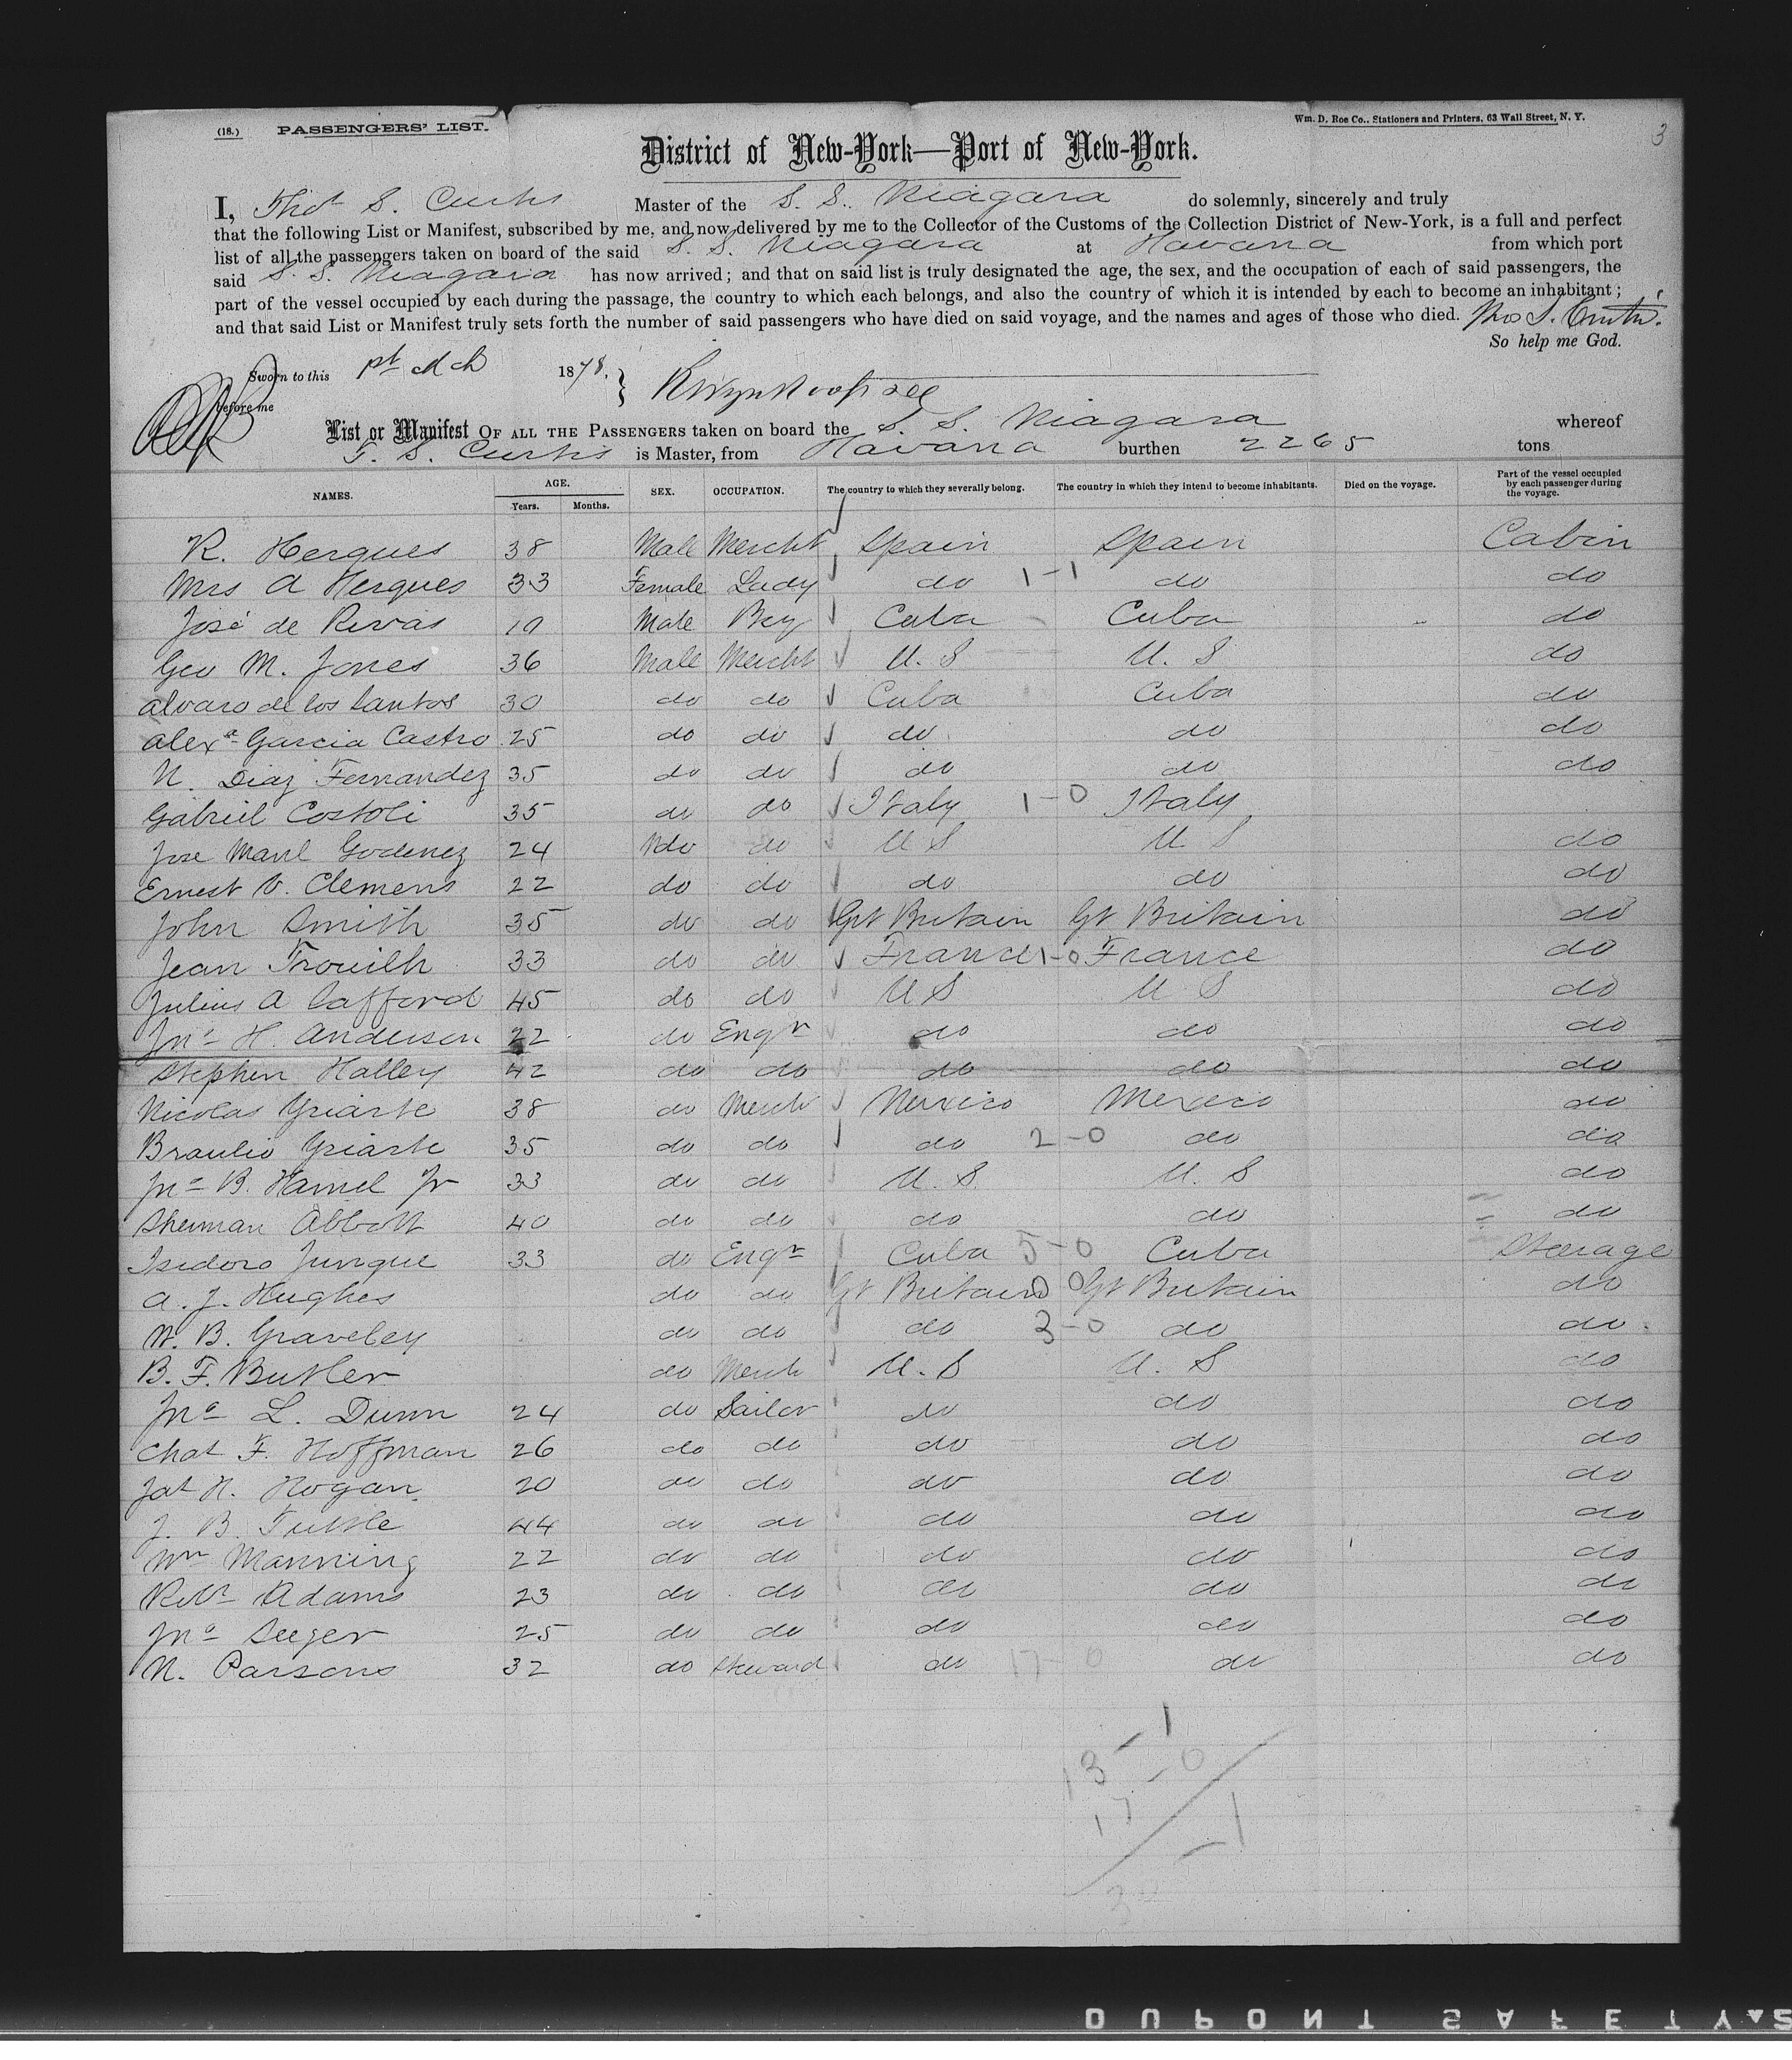 (18.) PASSENGERS' LIST. Wm. D. Roe Co., Stationers and Printers, 63 Wall Street, N. Y. 3
District of New-York—Port of New-York.
I, Thos S. Curtis Master of the S. S. Niagara do solemnly, sincerely and truly
that the following List or Manifest, subscribed by me, and now delivered by me to the Collector of the Customs of the Collection District of New-York, is a full and perfect
list of all the passengers taken on board of the said S. S. Niagara at Havana from which port
said S. S. Niagara has now arrived; and that on said list is truly designated the age, the sex, and the occupation of each of said passengers, the
part of the vessel occupied by each during the passage, the country to which each belongs, and also the country of which it is intended by each to become an inhabitant;
and that said List or Manifest truly sets forth the number of said passengers who have died on said voyage, and the names and ages of those who died. Thos S. Curtis.
So help me God.
Sworn to this 1st Mch 1878.
before me
List or Manifest OF ALL THE PASSENGERS taken on board the S. S. Niagara whereof
T. S. Curtis is Master, from Havana burthen 2265 tons
NAMES. AGE. Years. Months. SEX. OCCUPATION. The country to which they severally belong. The country in which they intend to become inhabitants. Died on the voyage. Part of the vessel occupied by each passenger during the voyage.
R. Hergues 38 Male Mercht Spain Spain Cabin
Mrs A Hergues 33 Female Lady do 1-1 do do
José de Rivas 19 Male Cuba Cuba do
Geo M. Jones 36 Male Mercht U. S U. S do
Alvaro de los Santos 30 do do Cuba Cuba do
Alexr Garcia Castro 25 do do do do do
N. Diaz Fernandez 35 do do do do do
Gabriel Costoli 35 do do Italy 1-0 Italy
Jose Manl Godinez 24 do do U S U S do
Ernest V. Clemens 22 do do do do do
John Smith 35 do do Gt Britain Gt Britain do
Jean Trouilh 33 do do France 1-0 France do
Julius A Safford 45 do do U S U S do
Jno H. Anderson 22 do Engr do do do
Stephen Halley 42 do do do do do
Nicolas Yriarte 38 do Merch Mexico Mexico do
Braulio Yriarte 35 do do do 2-0 do do
Jno B. Hamel Jr 33 do do U. S. U. S do
Sherman Abbott 40 do do do do do
Isidoro Junque 33 do Engr Cuba 5-0 Cuba Steerage
A. J. Hughes do do Gt Britain Gt Britain do
W. B. Graveley do do do 3-0 do do
B. F. Butler do Merch U. S U. S do
Jno L. Dunn 24 do Sailor do do do
Chas F. Hoffman 26 do do do do do
Jas H. Hogan 20 do do do do do
J. B. Tuttle 44 do do do do do
Wm Manning 22 do do do do do
Robt Adams 23 do do do do do
Jno Seeger 25 do do do do do
N. Parsons 32 do Steward do 17-0 do do
13 - 1
17 - 0
- 1
DUPONT SAFETY